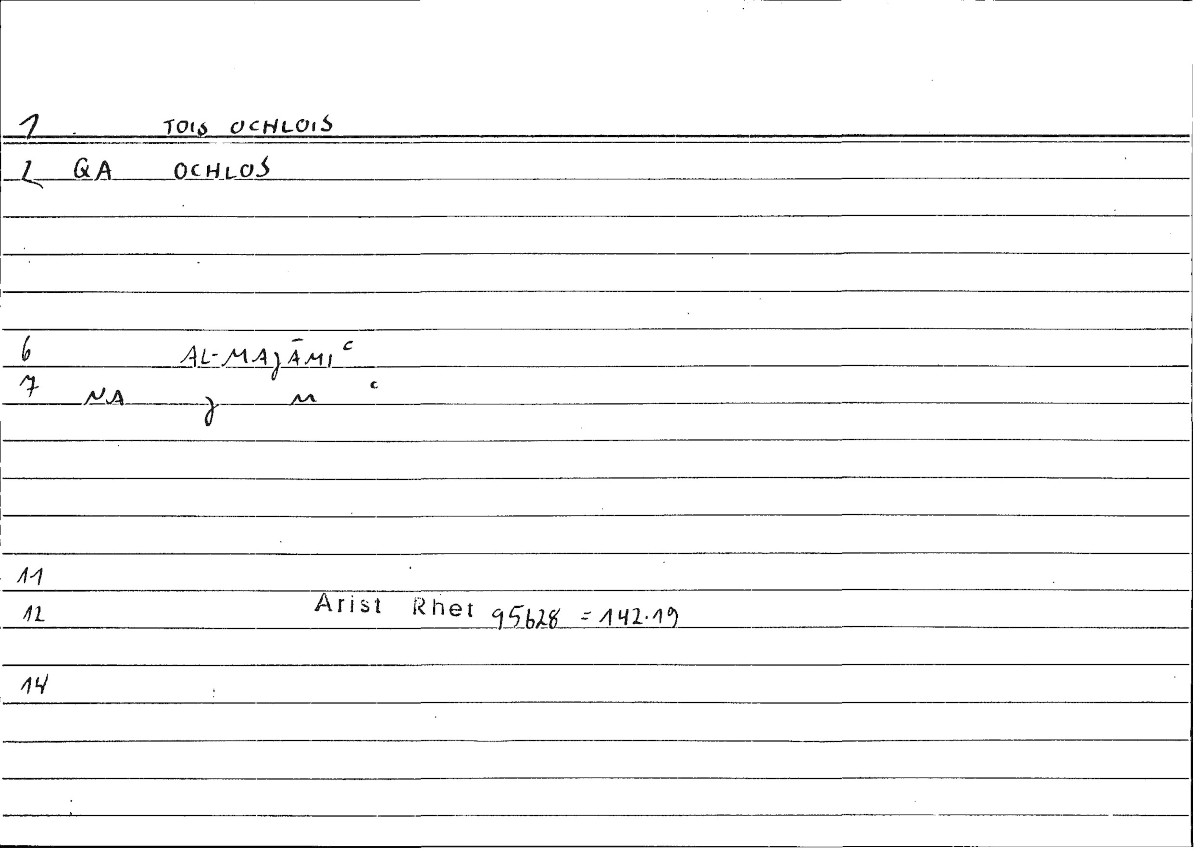 1 TOIS OCHLOIS
2 QA OCHLOS
6 AL-MAJĀMIᶜ
7 NA j M ᶜ
11
12 Arist Rhet 95b28 = 142.19
14